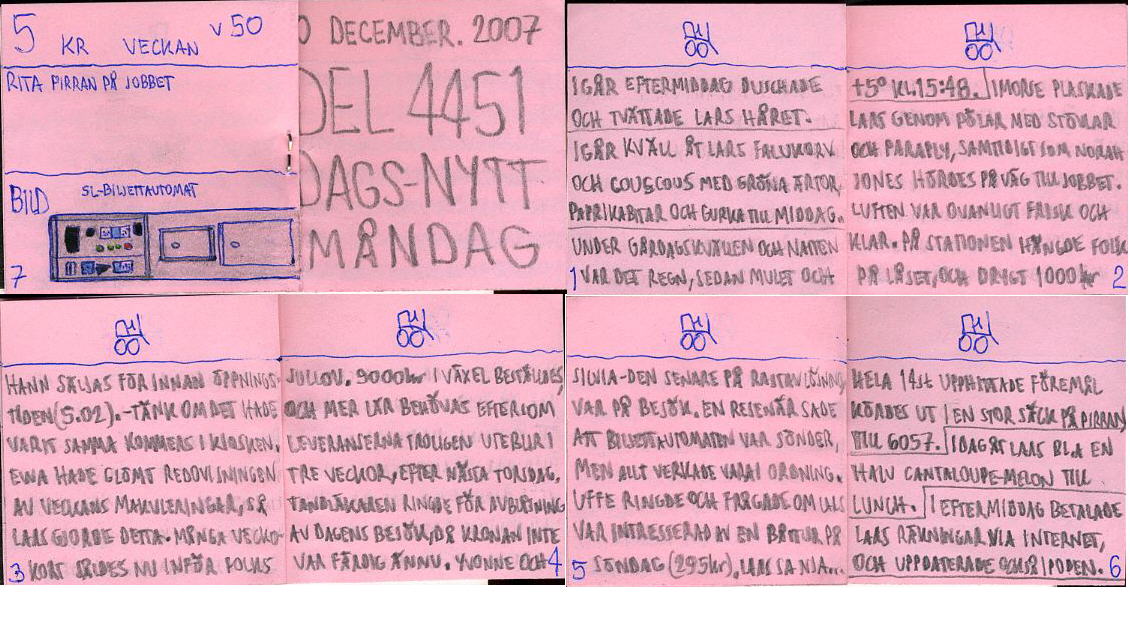 5 KR VECKAN V 50
RITA PIRRAN PÅ JOBBET
BILD SL-BILJETTAUTOMAT
7
0 DECEMBER. 2007
DEL 4451
DAGS-NYTT
MÅNDAG
IGÅR EFTERMIDDAG DUSCHADE
OCH TVÄTTADE LARS HÅRET.
IGÅR KVÄLL ÅT LARS FALUKORV
OCH COUSCOUS MED GRÖNA ÄRTOR,
PAPRIKABITAR OCH GURKA TILL MIDDAG.
UNDER GÅRDAGSKVÄLLEN OCH NATTEN
1 VAR DET REGN, SEDAN MULET OCH
+5° KL.15:48. IMORSE PLASKADE
LARS GENOM PÖLAR MED STÖVLAR
OCH PARAPLY, SAMTIDIGT SOM NORAH
JONES HÖRDES PÅ VÄG TILL JOBBET.
LUFTEN VAR OVANLIGT FRISK OCH
KLAR. PÅ STATIONEN HÄNGDE FOLK
PÅ LÅSET, OCH DRYGT 1000 kr 2
HANN SÄLJAS FÖR INNAN ÖPPNINGS-
TIDEN (5.02). -TÄNK OM DET HADE
VARIT SAMMA KOMMERS I KIOSKEN.
EWA HADE GLÖMT REDOVISNINGEN
AV VECKANS MAKULERINGAR, SÅ
LARS GJORDE DETTA. MÅNGA VECKO-
3 KORT SÅLDES NU INFÖR FOLKS
JULLOV. 9000 kr I VÄXEL BESTÄLLDES,
OCH MER LÄR BEHÖVAS EFTERSOM
LEVERANSERNA TROLIGEN UTEBLIR I
TRE VECKOR, EFTER NÄSTA TORSDAG.
TANDLÄKAREN RINGDE FÖR AVBOKNING
AV DAGENS BESÖK, DÅ KRONAN INTE
VAR FÄRDIG ÄNNU. YVONNE OCH 4
SILVIA-DEN SENARE PÅ RASTAVLÖSNING
VAR PÅ BESÖK. EN RESENÄR SADE
ATT BILJETTAUTOMATEN VAR SÖNDER,
MEN ALLT VERKADE VARA I ORDNING.
UFFE RINGDE OCH FRÅGADE OM LARS
VAR INTRESSERAD AV EN BÅTTUR PÅ
5 SÖNDAG (295kr), LARS SA NJA...
HELA 14st UPPHITTADE FÖREMÅL
KÖRDES UT I EN STOR SÄCK PÅ PIRRAN,
TILL 6057. IDAG ÅT LARS BL.A EN
HALV CANTALOUPE-MELON TILL
LUNCH. I EFTERMIDDAG BETALADE
LARS RÄKNINGAR VIA INTERNET,
OCH UPPDATERADE OCKSÅ IPODEN. 6